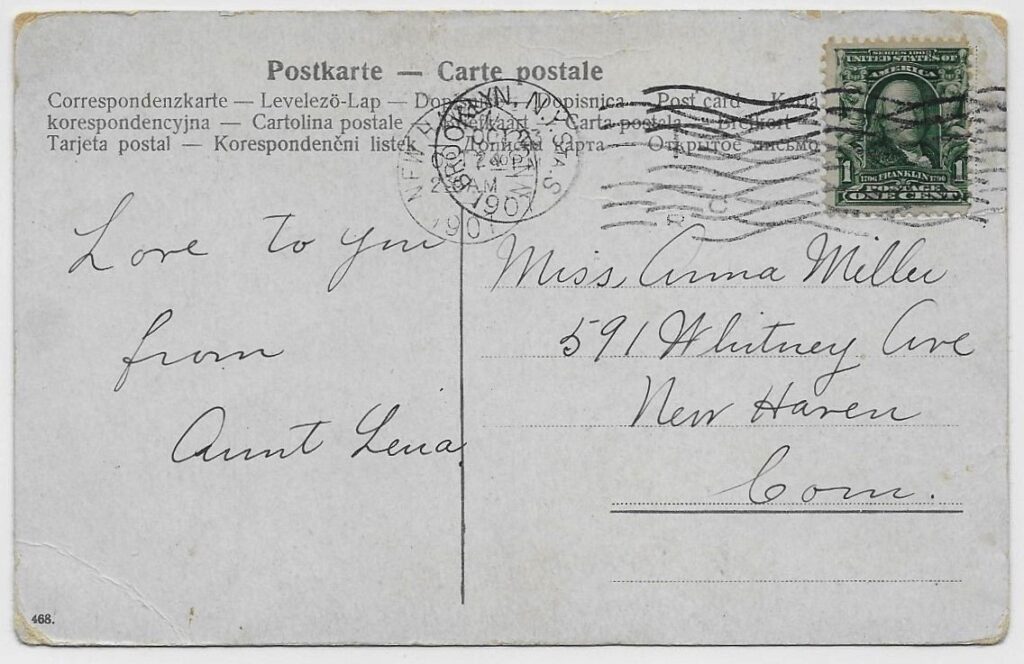 Postkarte — Carte postale
Correspondenzkarte — Levelezö-Lap — Dopisnica — Post card — Karta
korespondencyjna — Cartolina postale — Carta postala — Brefkort
Tarjeta postal — Korespondenčni listek — Дописна карта — Открытое письмо
BROOKLYN, N.Y. STA. S.
1907
NEW H
AM
1907
SERIES 1902
UNITED STATES OF
AMERICA
1 1
1706 FRANKLIN 1790
POSTAGE
ONE CENT
Love to you
from
Aunt Lena
Miss Anna Miller
591 Whitney Ave
New Haven
Conn.
468.